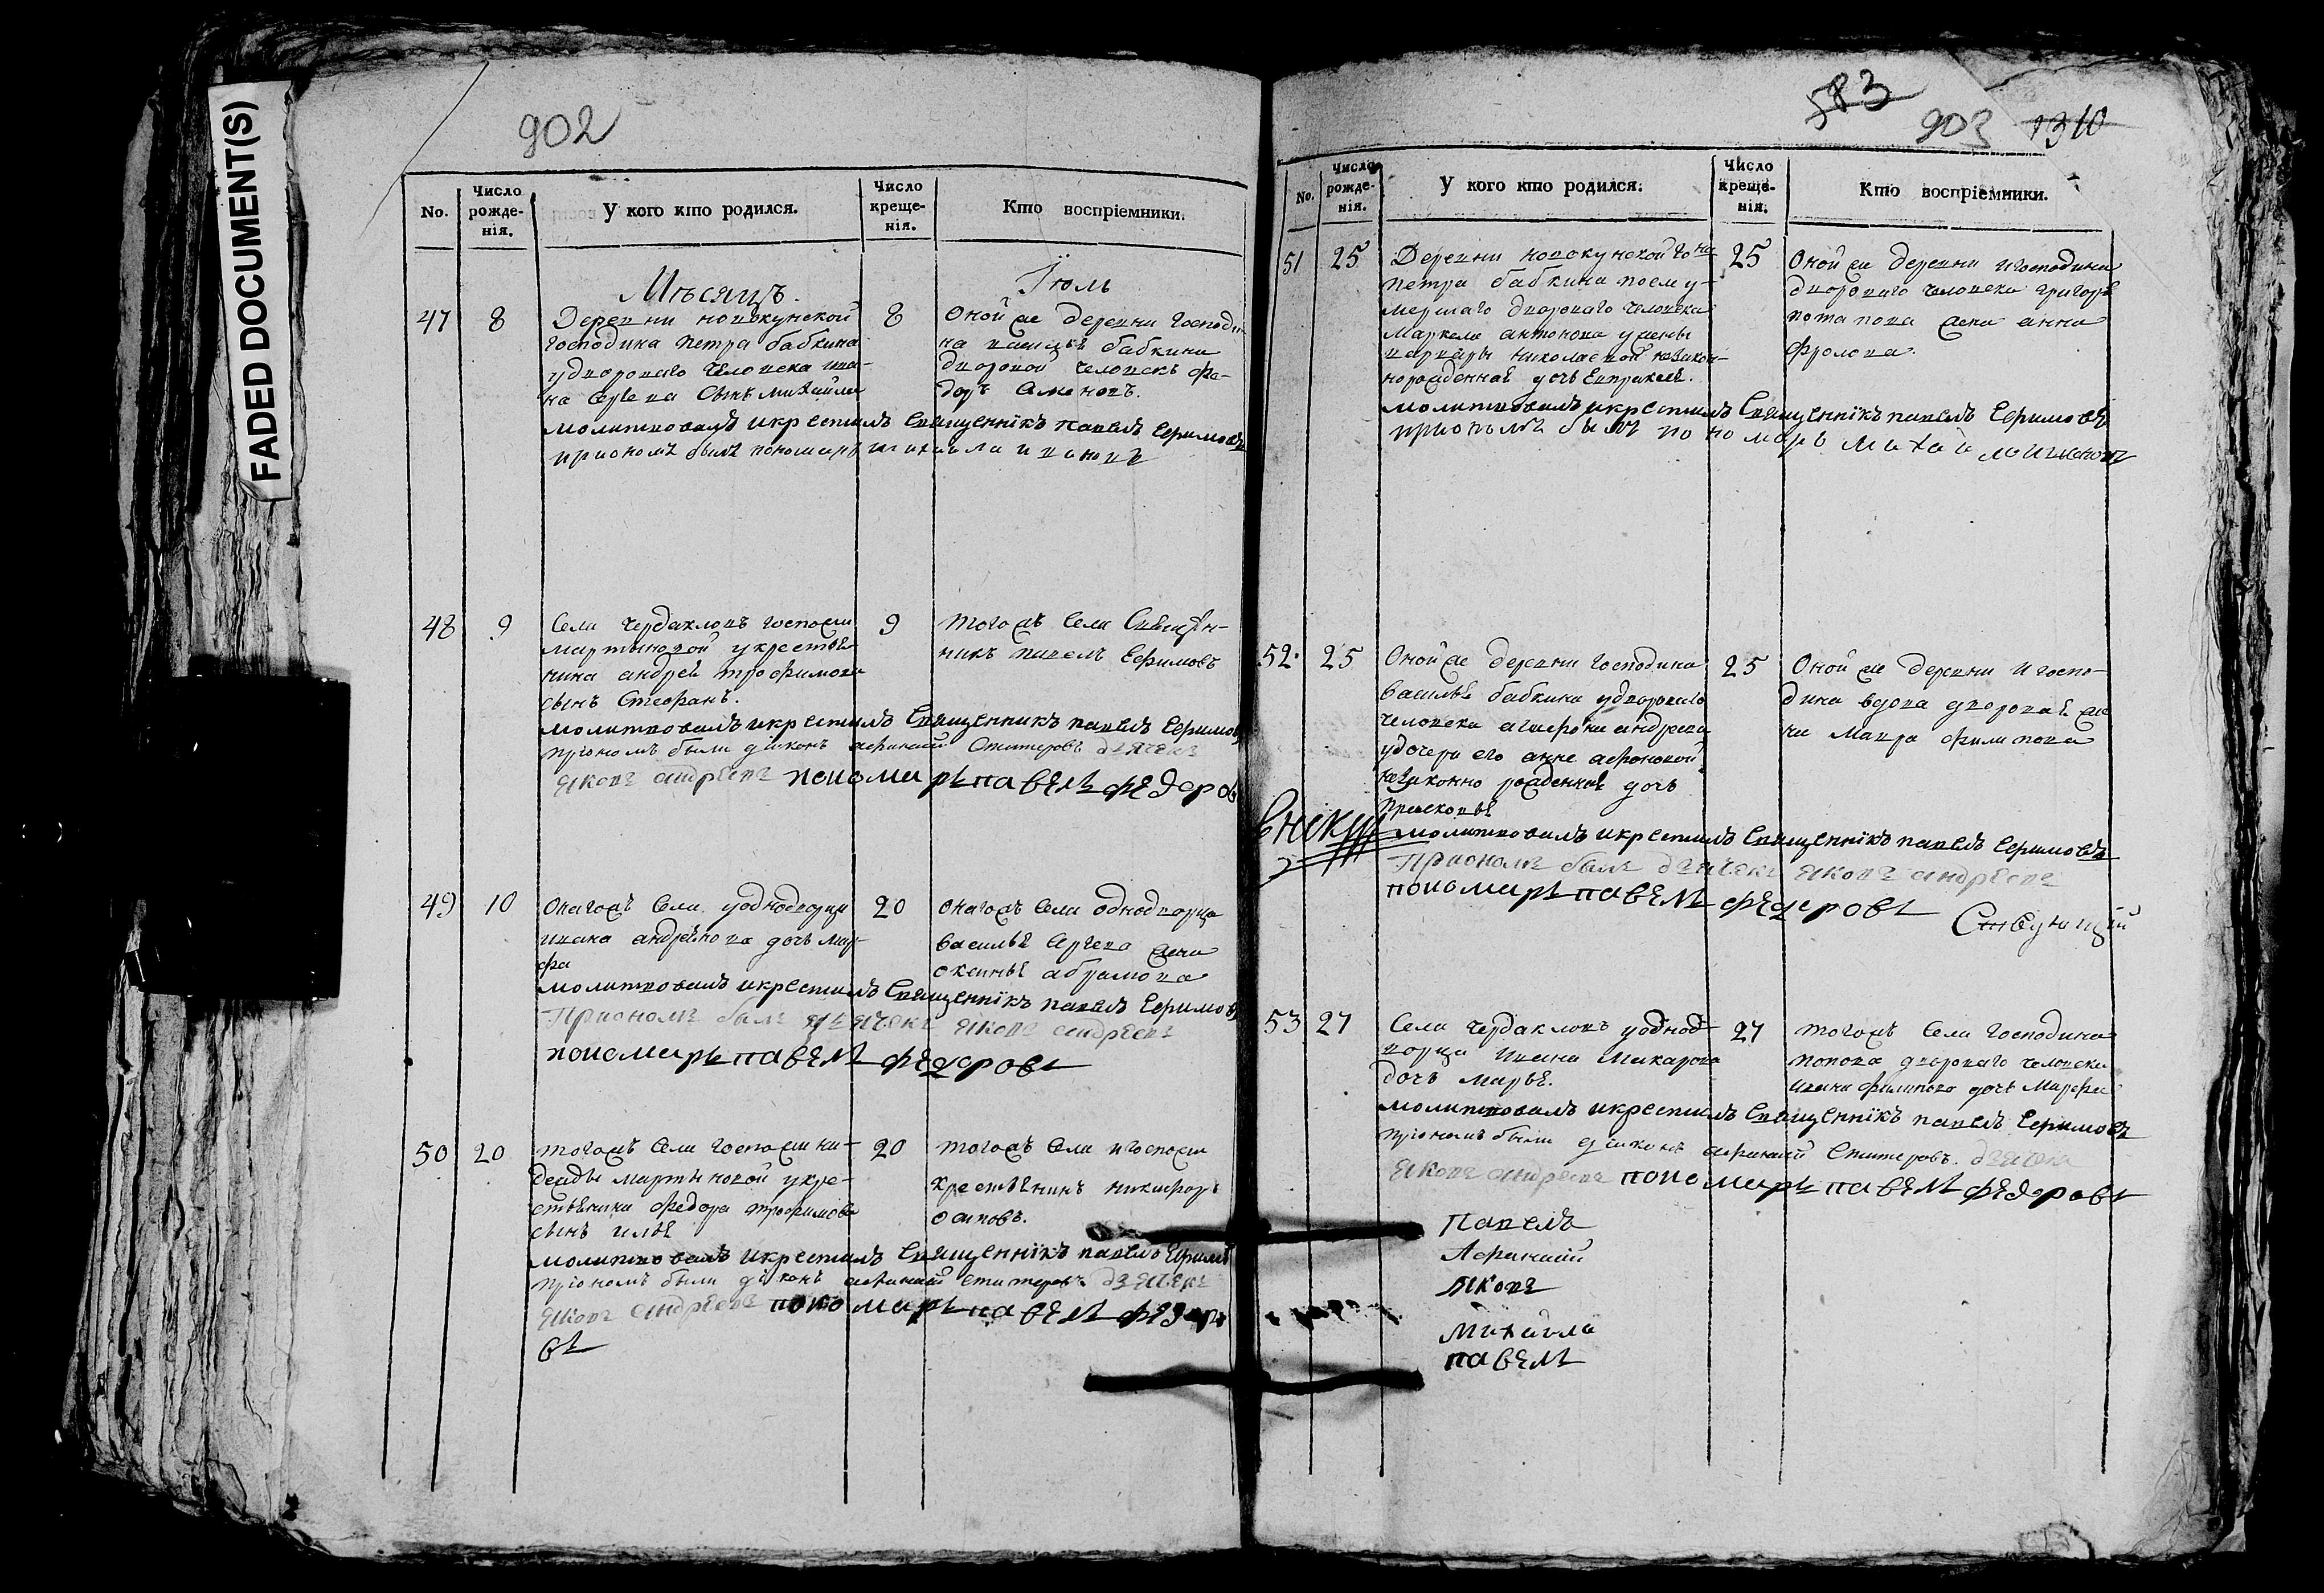 FADED DOCUMENT(S)
902
No.
Число рожде-нія.
У кого кто родился.
Число креще-нія.
Кто воспріемники.
Мѣсяцъ. Іюль
47 8
Деревни новокунской
господина петра бабкина
удворового человека ива-
на сын михаила
8
Оной же деревни господи-
на василья бабкина
дворовой человекъ фе-
доръ Семеновъ.
молитвовалъ икрестилъ Священнікъ павелъ Ефимовъ
приономъ былъ пономарь михаила ивановъ
48 9
Села чердакловъ госпожи
мартыновой укрестья
нина андрея трофимова
сынъ Стефанъ.
9
тогожъ села Священ-
никъ павелъ Ефимовъ
молитвовалъ икрестилъ Священникъ павелъ Ефимовъ
приномъ были дияконъ афанасий дьячекъ
яковъ андреевъ пономарь павелъ федеров
49 10
Оногожъ Села уоднодворца
ивана дочь мар-
фа
20
Оногожъ села однодворца
василья жена
аксинья абрамова
молитвовалъ икрестилъ Священнікъ павелъ Ефимовъ
Приономъ былъ дьячекъ яковъ андреевъ
пономарь павелъ федеровъ
50 20
тогожъ села госпожи на-
дежды мартыновой укре-
стьянина федора трофимова
сынъ илья
20
тогожъ села и госпожи
крестьянинъ никифоръ
осиповъ.
молитвовалъ икрестилъ Священнікъ павелъ Ефимовъ
приономъ были дияконъ афанасий дьячекъ
яковъ андреевъ пономарь павелъ федеро
въ
583
903 1310
No.
Число рожде-нія.
У кого кто родился.
Число креще-нія.
Кто воспріемники.
51 25
Деревни новокунской г на
петра бабкина после у-
мершаго двороваго человека
маркела антонова ужены
варвары николаевой незакон-
норожденная дочь Евпраксея.
25
Оной же деревни игосподина
двороваго человека григорья
потапова жена анна
фролова.
молитвовалъ икрестилъ Священнікъ павелъ Ефимовъ
приономъ былъ пономарь михаила ивановъ
52. 25
Оной же деревни господина
василья бабкина удвороваго
человека андреева
удочери его анны афоновой
незаконно рожденная дочь
Прасковья
25
Оной же деревни и госпо-
дина вдова дворовая
мавра филипова
молитвовалъ икрестилъ Священнікъ павелъ Ефимовъ
Приономъ былъ дьячекъ яковъ андреевъ
пономарь павелъ федеровъ
53 27
Села чердакловъ уоднод-
ворца ивана макарова
дочь марья.
27
тогожъ села господина
попова двороваго человека
ивана филипова дочь марфа
молитвовалъ икрестилъ Священнікъ павелъ Ефимовъ
приономъ были дияконъ афанасий дьячекъ
яковъ андреевъ пономарь павелъ федеровъ
Павелъ
Афанасий
яковъ
Михаила
павелъ